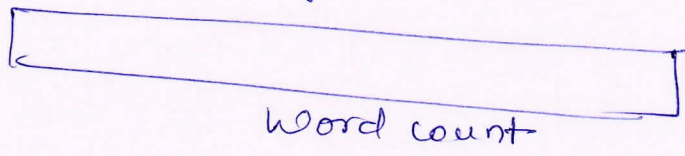 Word count